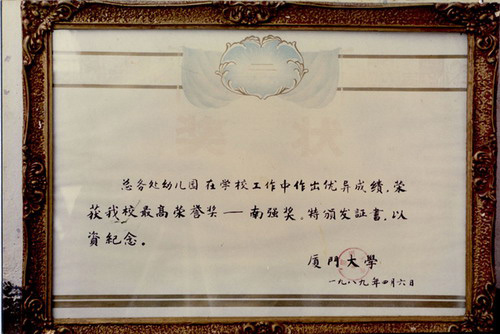 奖状
总务处幼儿园在学校工作中作出优异成绩,荣
获我校最高荣誉奖——南强奖。特颁发証書,以
資紀念。
厦門大學
一九八九年四月六日